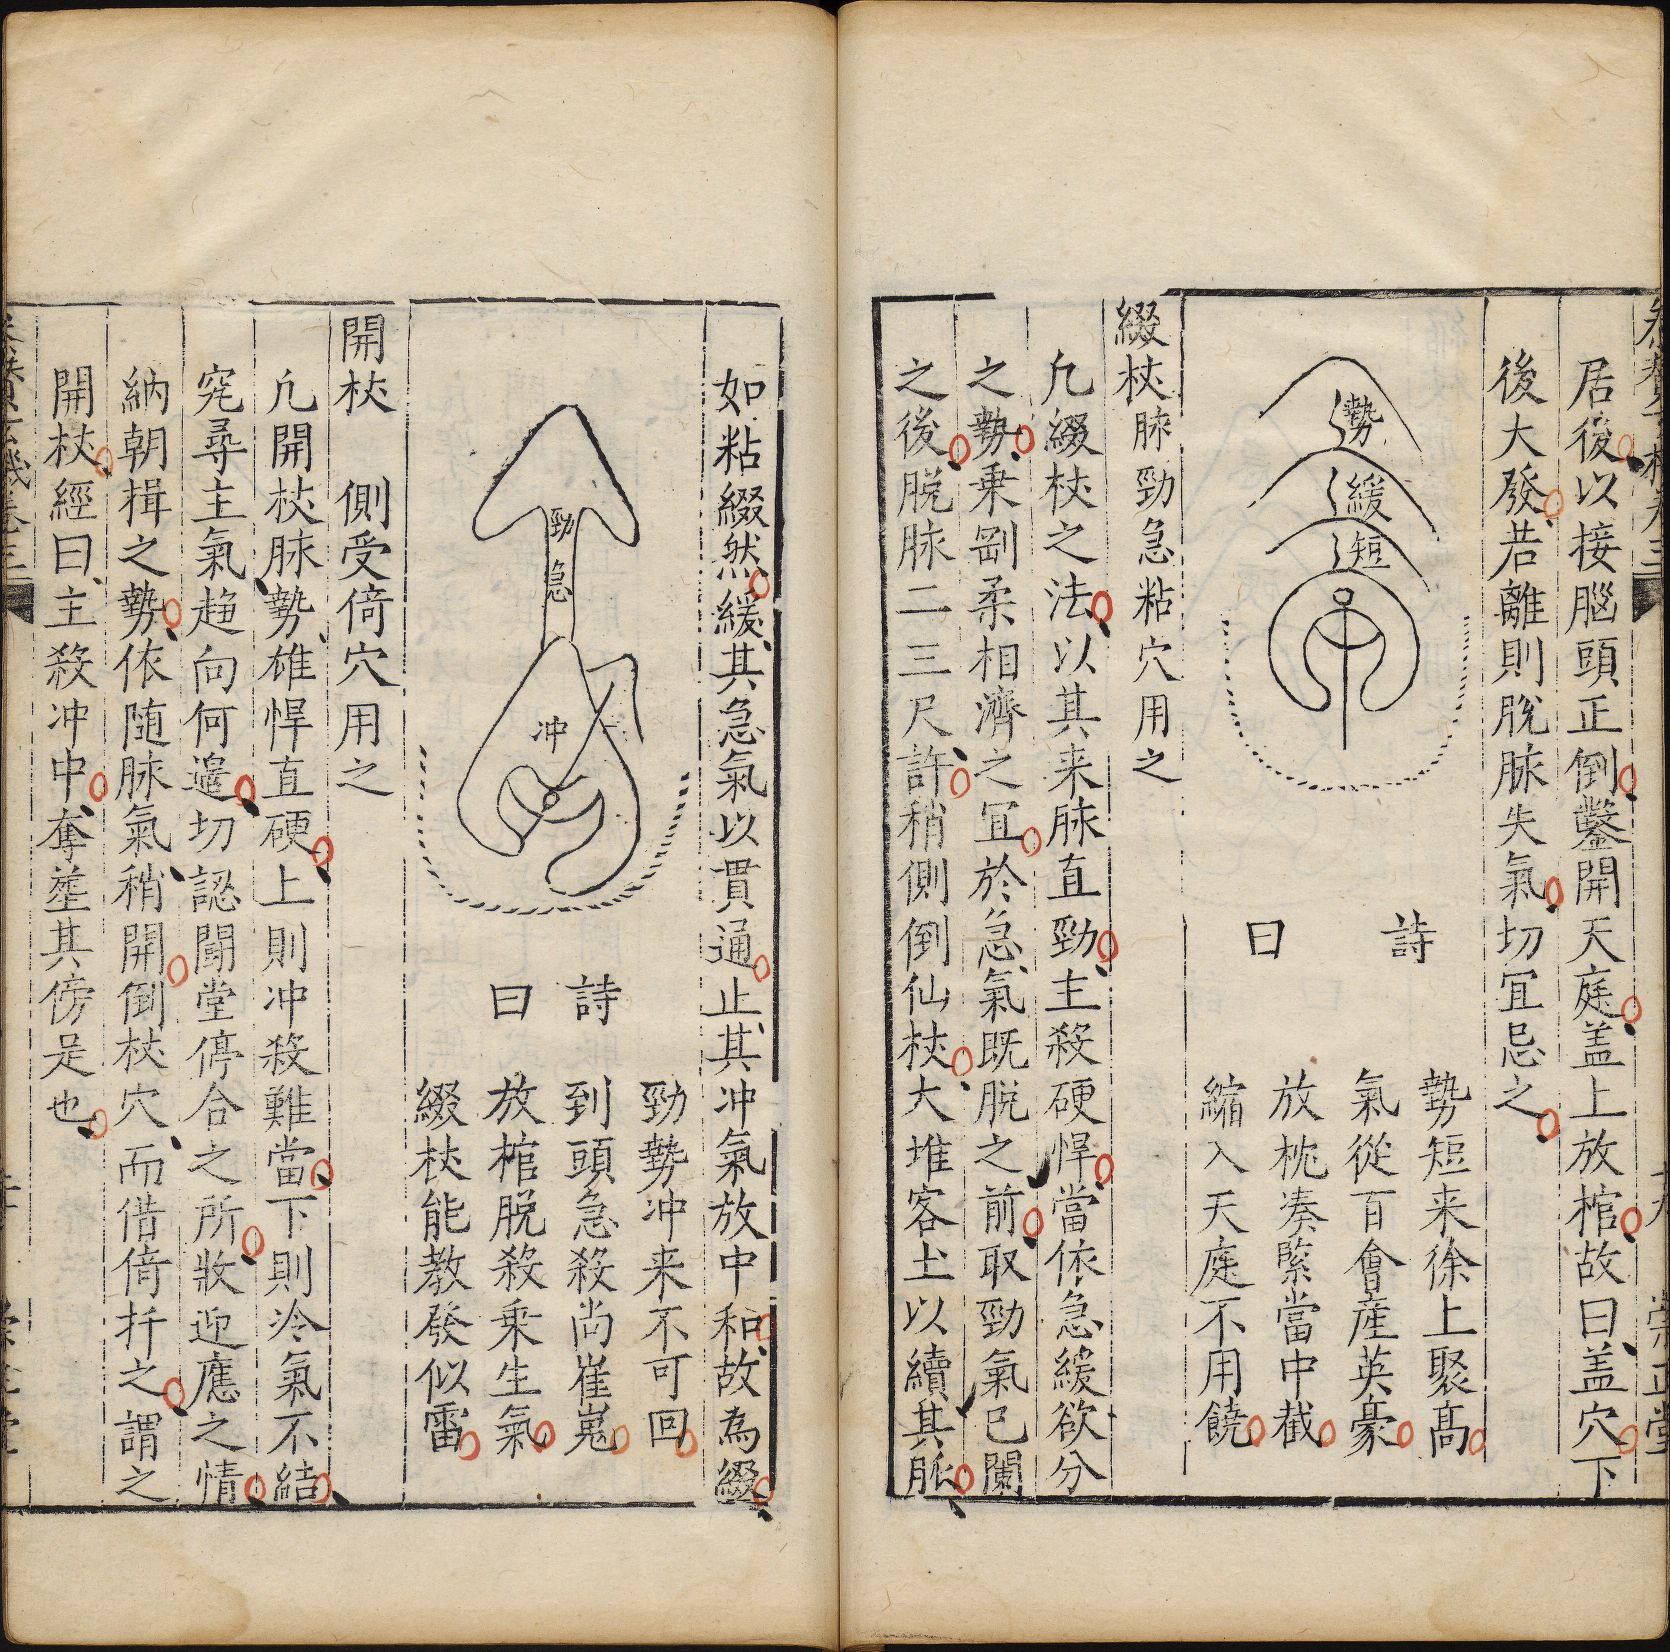 居後以接腦頭正倒鑿開天庭盖上放棺故曰盖穴下
後大發若離則脫脉失氣切宜忌之
勢
緩
短
詩曰
勢短来徐上聚高
氣從百會産英豪
放枕凑䋲當中截
縮入天庭不用饒
綴杖脉勁急粘穴用之
凢綴杖之法以其来脉直勁主殺硬悍當依急緩欲分
之勢乗剛柔相濟之宜於急氣既脫之前取勁氣已闌
之後脫脉二三尺許稍側倒仙杖大堆客土以續其脈
如粘綴然緩其急氣以貫通止其冲氣放中和故為綴
勁
急
冲
詩曰
勁勢冲来不可回
到頭急殺尚崔嵬
放棺脫殺乗生氣
綴杖能教發似雷
開杖 側受倚穴用之
凢開杖脉勢雄悍直硬上則冲殺難當下則冷氣不結
究尋主氣趋向何邉切認闘堂停合之所收迎應之情
納朝揖之勢依随脉氣稍開倒杖穴而借倚扦之謂之
開杖經曰主殺冲中奪塟其傍是也